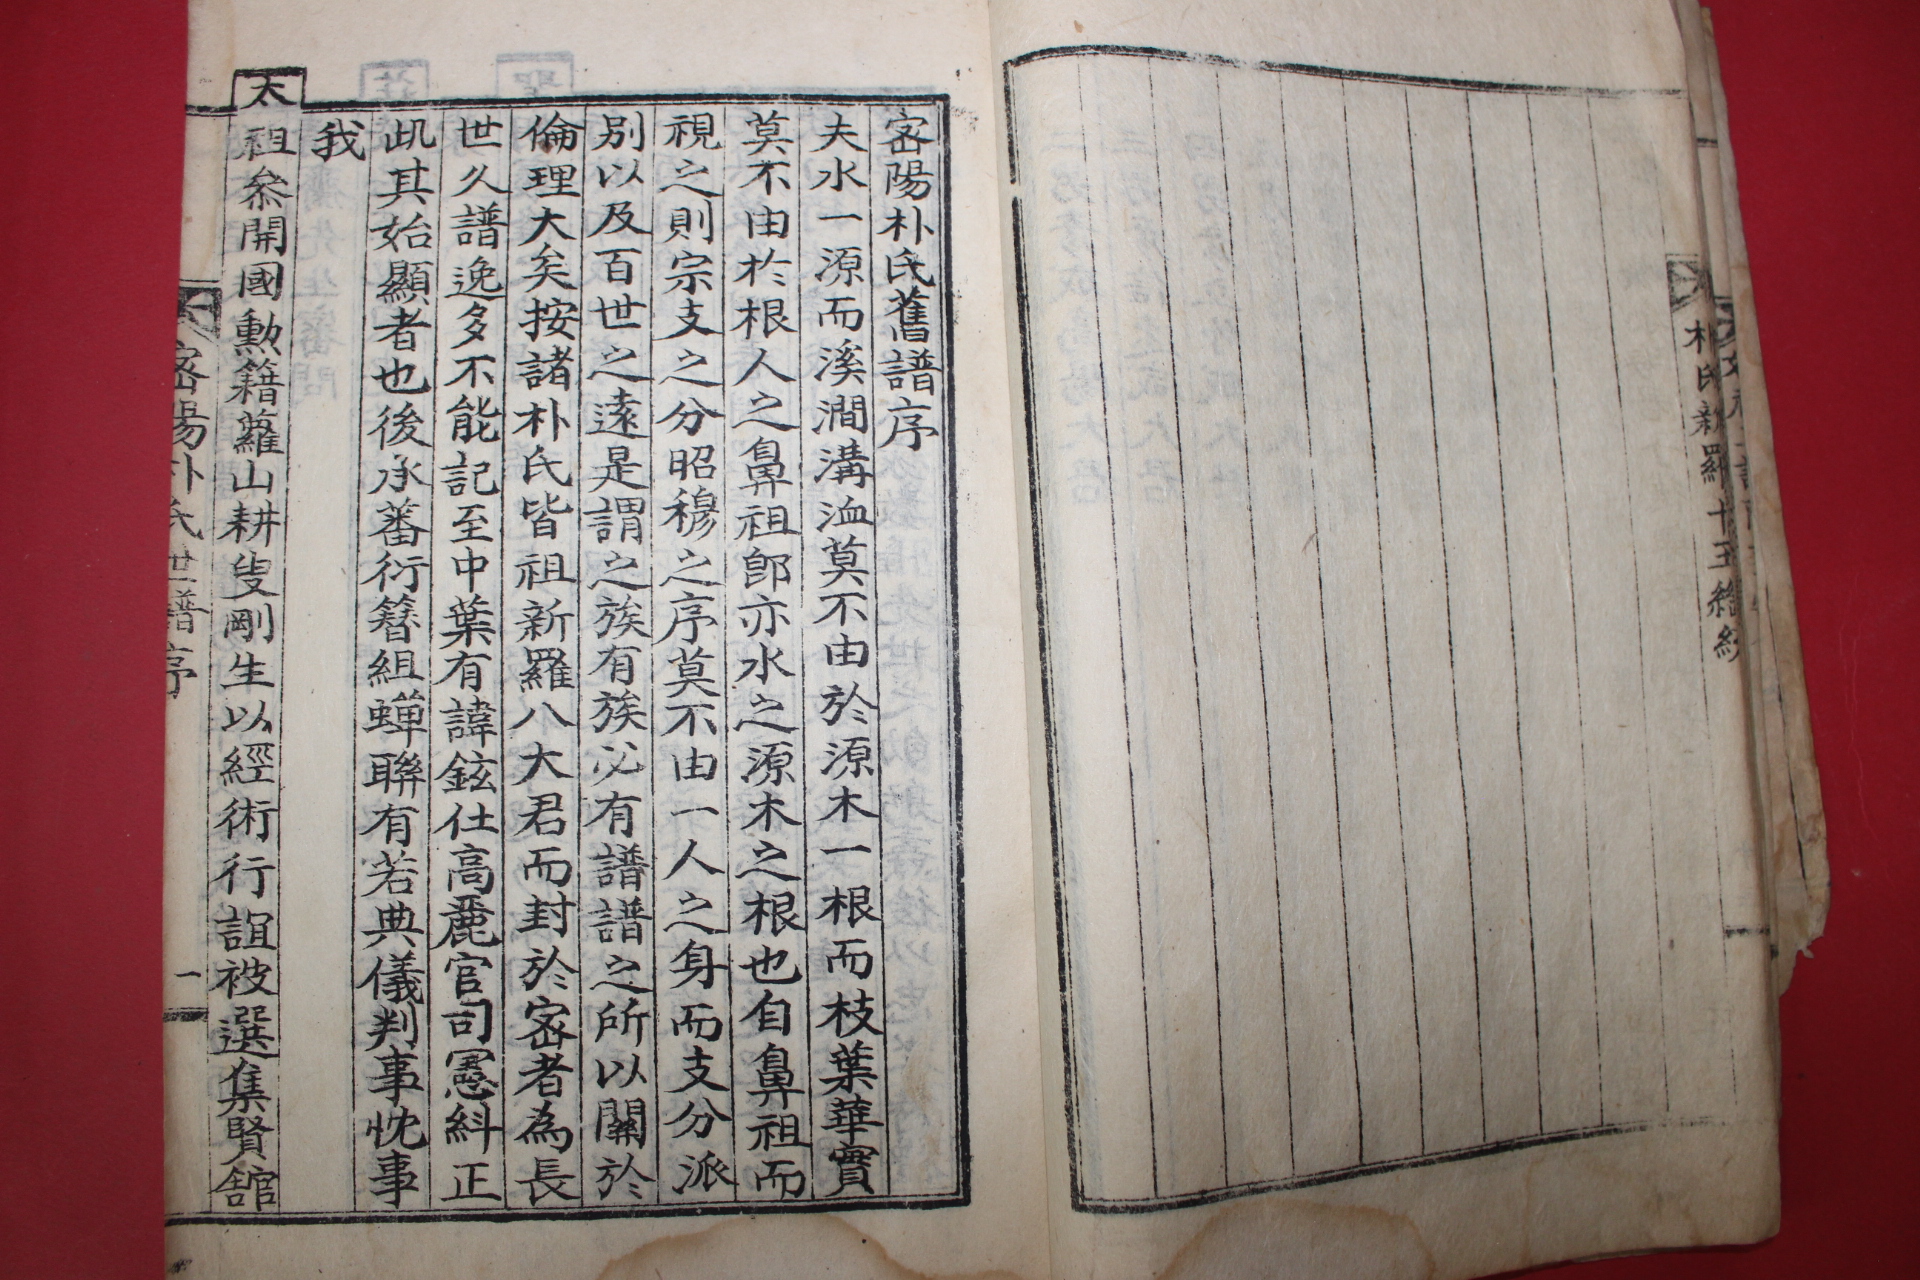 朴氏新羅十王
密陽朴氏舊譜序
夫水一源而溪澗溝洫莫不由於源木一根而枝葉華實
莫不由於根人之鼻祖卽亦水之源木之根也自鼻祖而
視之則宗支之分昭穆之序莫不由一人之身而支分派
別以及百世之遠是謂之族有族必有譜譜之所以關於
倫理大矣按諸朴氏皆祖新羅八大君而封於密者為長
世久譜逸多不能記至中葉有諱鉉仕高麗官司憲糾正
此其始顯者也後承蕃衍簪組蟬聯有若典儀判事忱事
我
太祖叅開國勳籍蘿山耕叟剛生以經術行誼被選集賢舘
密陽朴氏世譜序 一